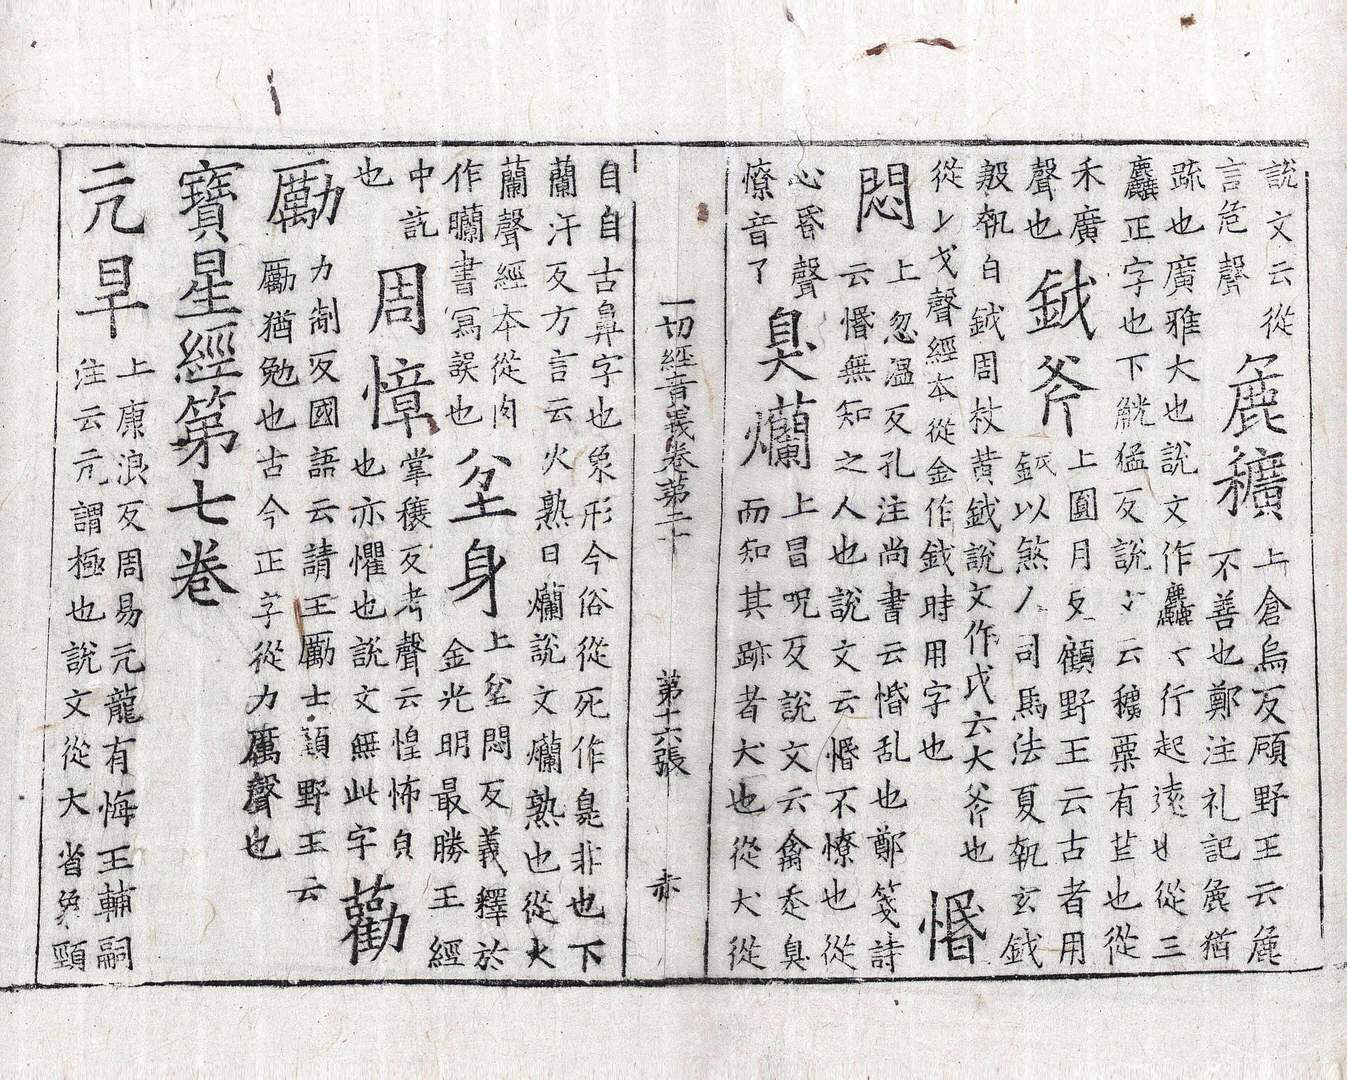 說文云從
言危聲
麁穬
上倉烏反顧野王云麁
不善也鄭注礼記麁猶
䟽也廣雅大也說文作麤〻行起遠也從三
麤正字也下觥猛反說〻云穬粟有芒也從
禾廣
聲也
鉞斧
上圓月反顧野王云古者用
鉞以煞人司馬法夏執玄鉞
殷執白鉞周杖黄鉞說文作戉云大斧也
從乚戈聲經本從金作鉞時用字也
惛
悶
上忽温反孔注尚書云惛乱也鄭箋詩
云惛無知之人也說文云惛不憭也從
心昏聲
憭音了
臭爛
上冒呪反說文云禽走臭
而知其跡者犬也從犬從
一切經音義卷第二十 第十六張 赤
自自古鼻字也象形今俗從死作臰非也下
蘭汗反方言云火熟曰爛說文爛熟也從火
蘭聲經本從肉
作矊書冩誤也
坌身
上坌悶反義釋於
金光明最勝王經
中訖
也
周慞
掌穰反考聲云惶怖皃
也亦懼也說文無此字
勸
勵
力制反國語云請王勵士顧野王云
勵猶勉也古今正字從力厲聲也
寶星經第七卷
亢旱
上康浪反周易亢龍有悔王輔嗣
注云亢謂極也說文從大省象頸